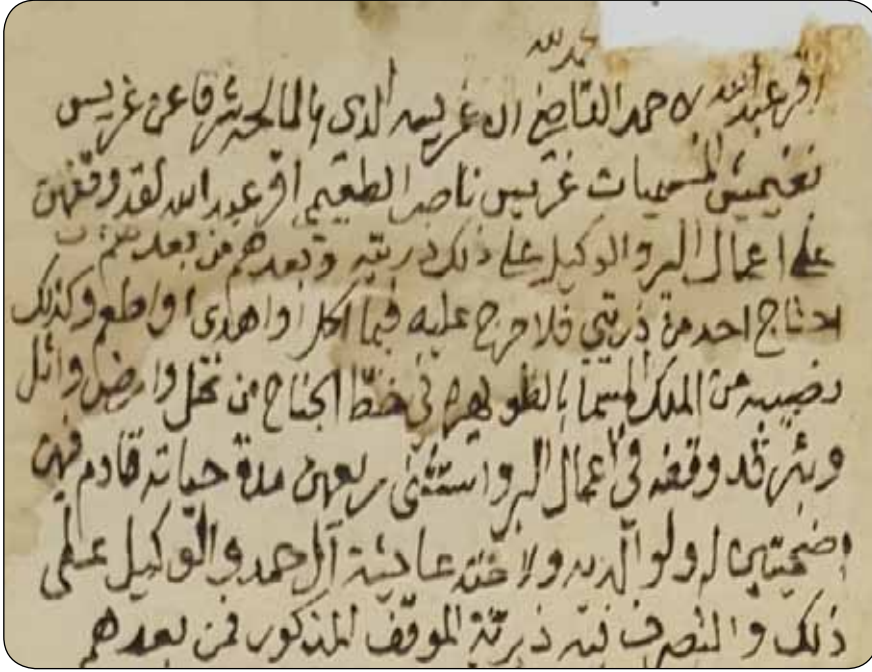 الحمد لله
اقر عبد الله الاحمد القاضي ان غريسه الذي بالمالحه شرقا عن غريس
نغيميش المسميات غريس ناصر الطعيمي اقر عبد الله لقد وقفهن
على اعمال البر والوكيل على ذلك ذريته وبعدهم من بعدهم
احتاج احد من ذريتي فلا حرج عليه فيما اكل او اهدى او اطعم وكذلك
نصيبه من الملك المسما بالظويهره في خط الجناح من نخل وارض واثل
وبئر قد وقفه في اعمال البر واستثنى ريعهن مدة حياته قادم فيهن
اضحيتين له ولوالديه ولاخته عايشة آل حمد والوكيل على
ذلك والتصرف فيه ذريته الموقف المذكور فمن بعدهم